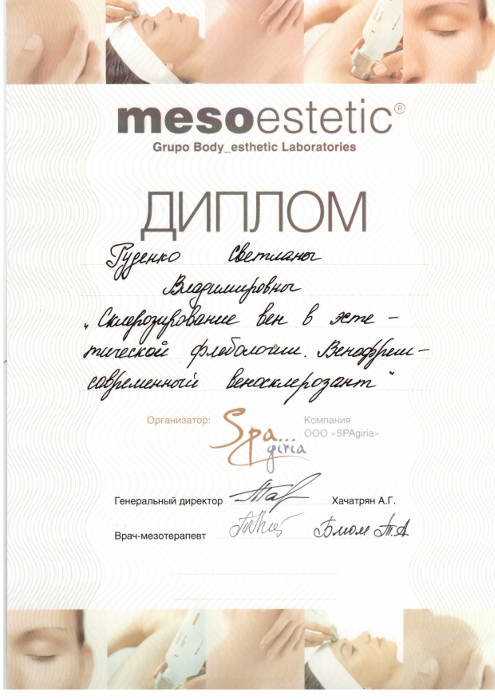 mesoestetic®
Grupo Body_esthetic Laboratories
ДИПЛОМ
Гуденко Светланы
Владимировны
"Склерозирование вен в эсте-
тической флебологии. Венофреш-
современный веносклерозант"
Организатор:
Spa...
giria
Компания
ООО «SPAgiria»
Генеральный директор
Хачатрян А.Г.
Врач-мезотерапевт
Блюм Т.А